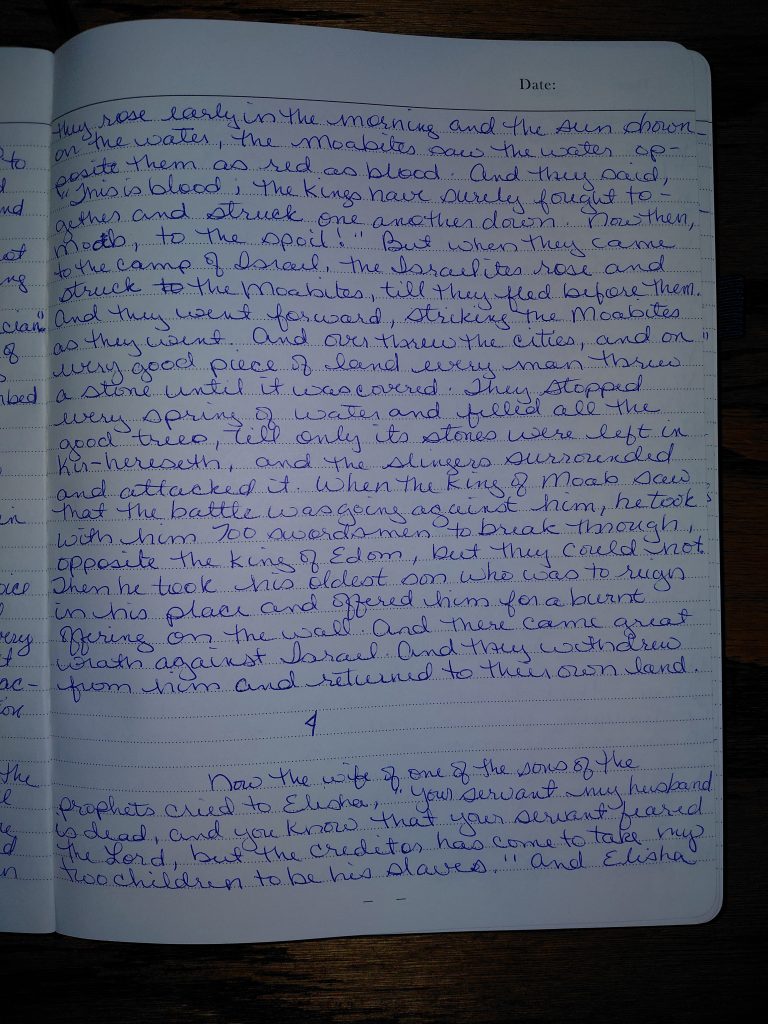 Date:
they rose early in the morning and the sun shown
on the water, the Moabites saw the water op-
posite them as red as blood. And they said,
"This is blood; the kings have surely fought to-
gether and struck one another down. Now then,
Moab, to the spoil!" But when they came
to the camp of Israel, the Israelites rose and
struck to the Moabites, till they fled before them.
And they went forward, striking the Moabites
as they went. And overthrew the cities, and on
every good piece of land every man threw
a stone until it was covered. They stopped
every spring of water and filled all the
good trees, till only its stones were left in
Kir-hereseth, and the slingers surrounded
and attacked it. When the king of Moab saw
that the battle was going against him, he took
with him 700 swordsmen to break through,
opposite the king of Edom, but they could not.
Then he took his oldest son who was to reign
in his place and offered him for a burnt
offering on the wall. And there came great
wrath against Israel. And they withdrew
from him and returned to their own land.
4
Now the wife of one of the sons of the
prophets cried to Elisha, "Your servant my husband
is dead, and you know that your servant feared
the Lord, but the creditor has come to take my
two children to be his slaves." And Elisha
to
nd
not
ng
cian"
of
nbed
en
oice
very
ac-
ion
the